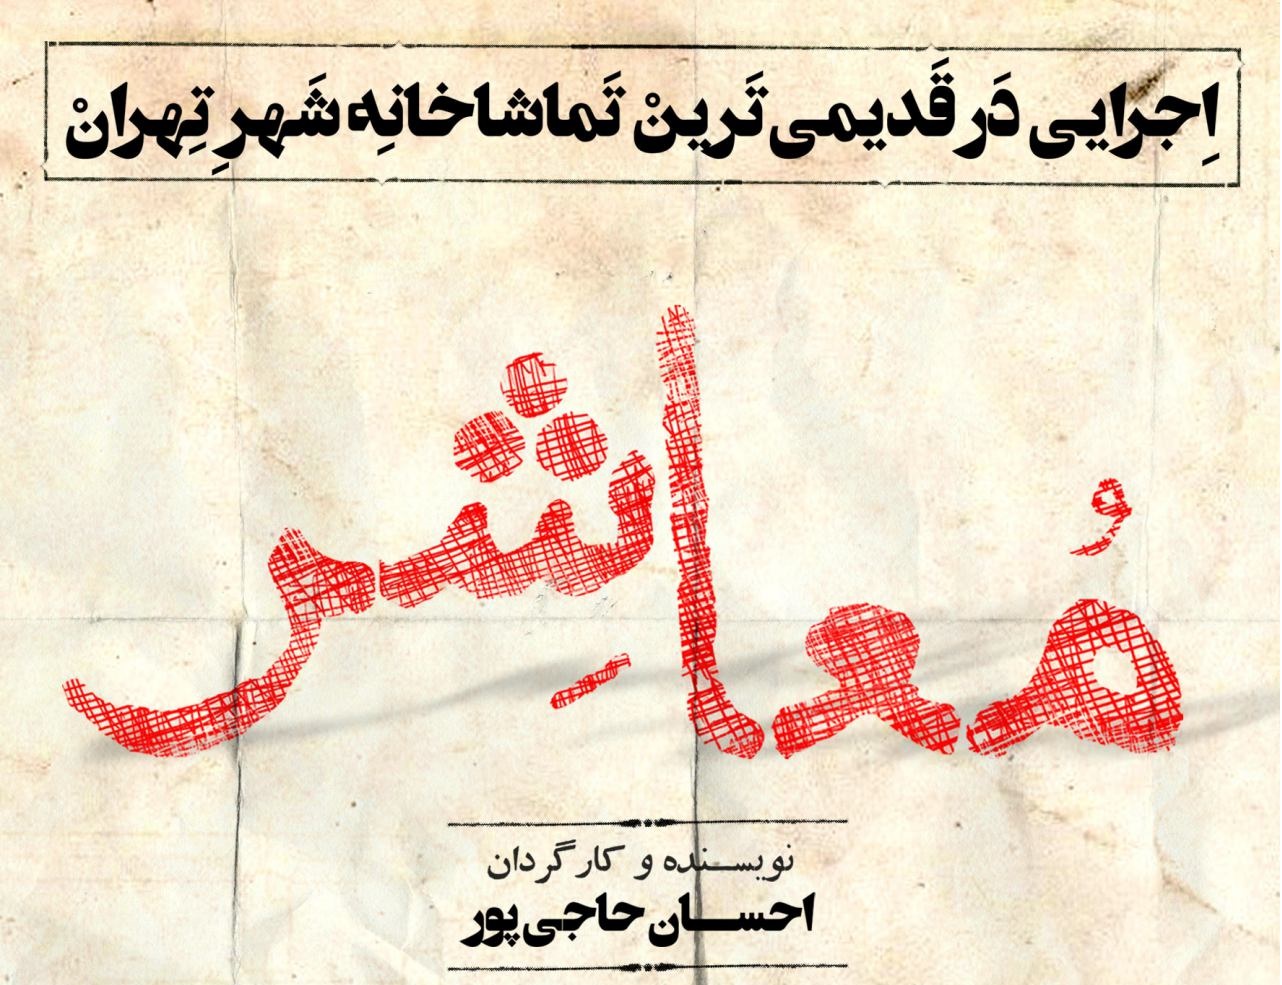 اِجرایی دَر قَدیمی تَرینْ تَماشاخانِه شَهرِ تِهرانْ
مُعاشِر
نویسنده و کارگردان
احسان حاجی‌پور